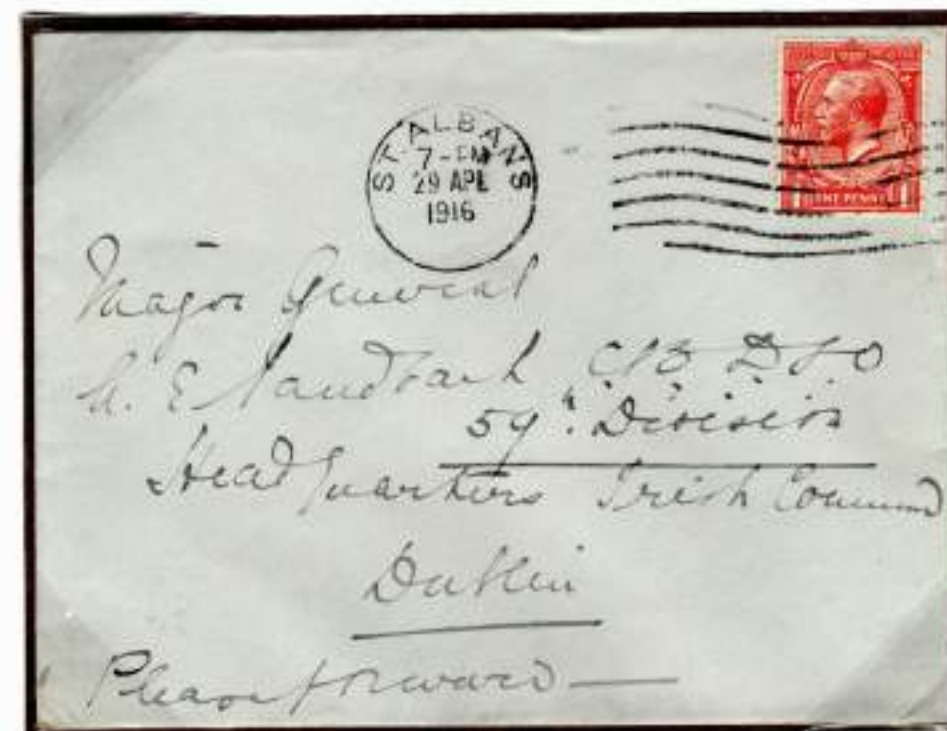 ST. ALBANS
7-PM
29 APL
1916
ONE PENNY
Major General
A. E Sandbach CB DSO
59th Division
Head Quarters Irish Command
Dublin
Please forward